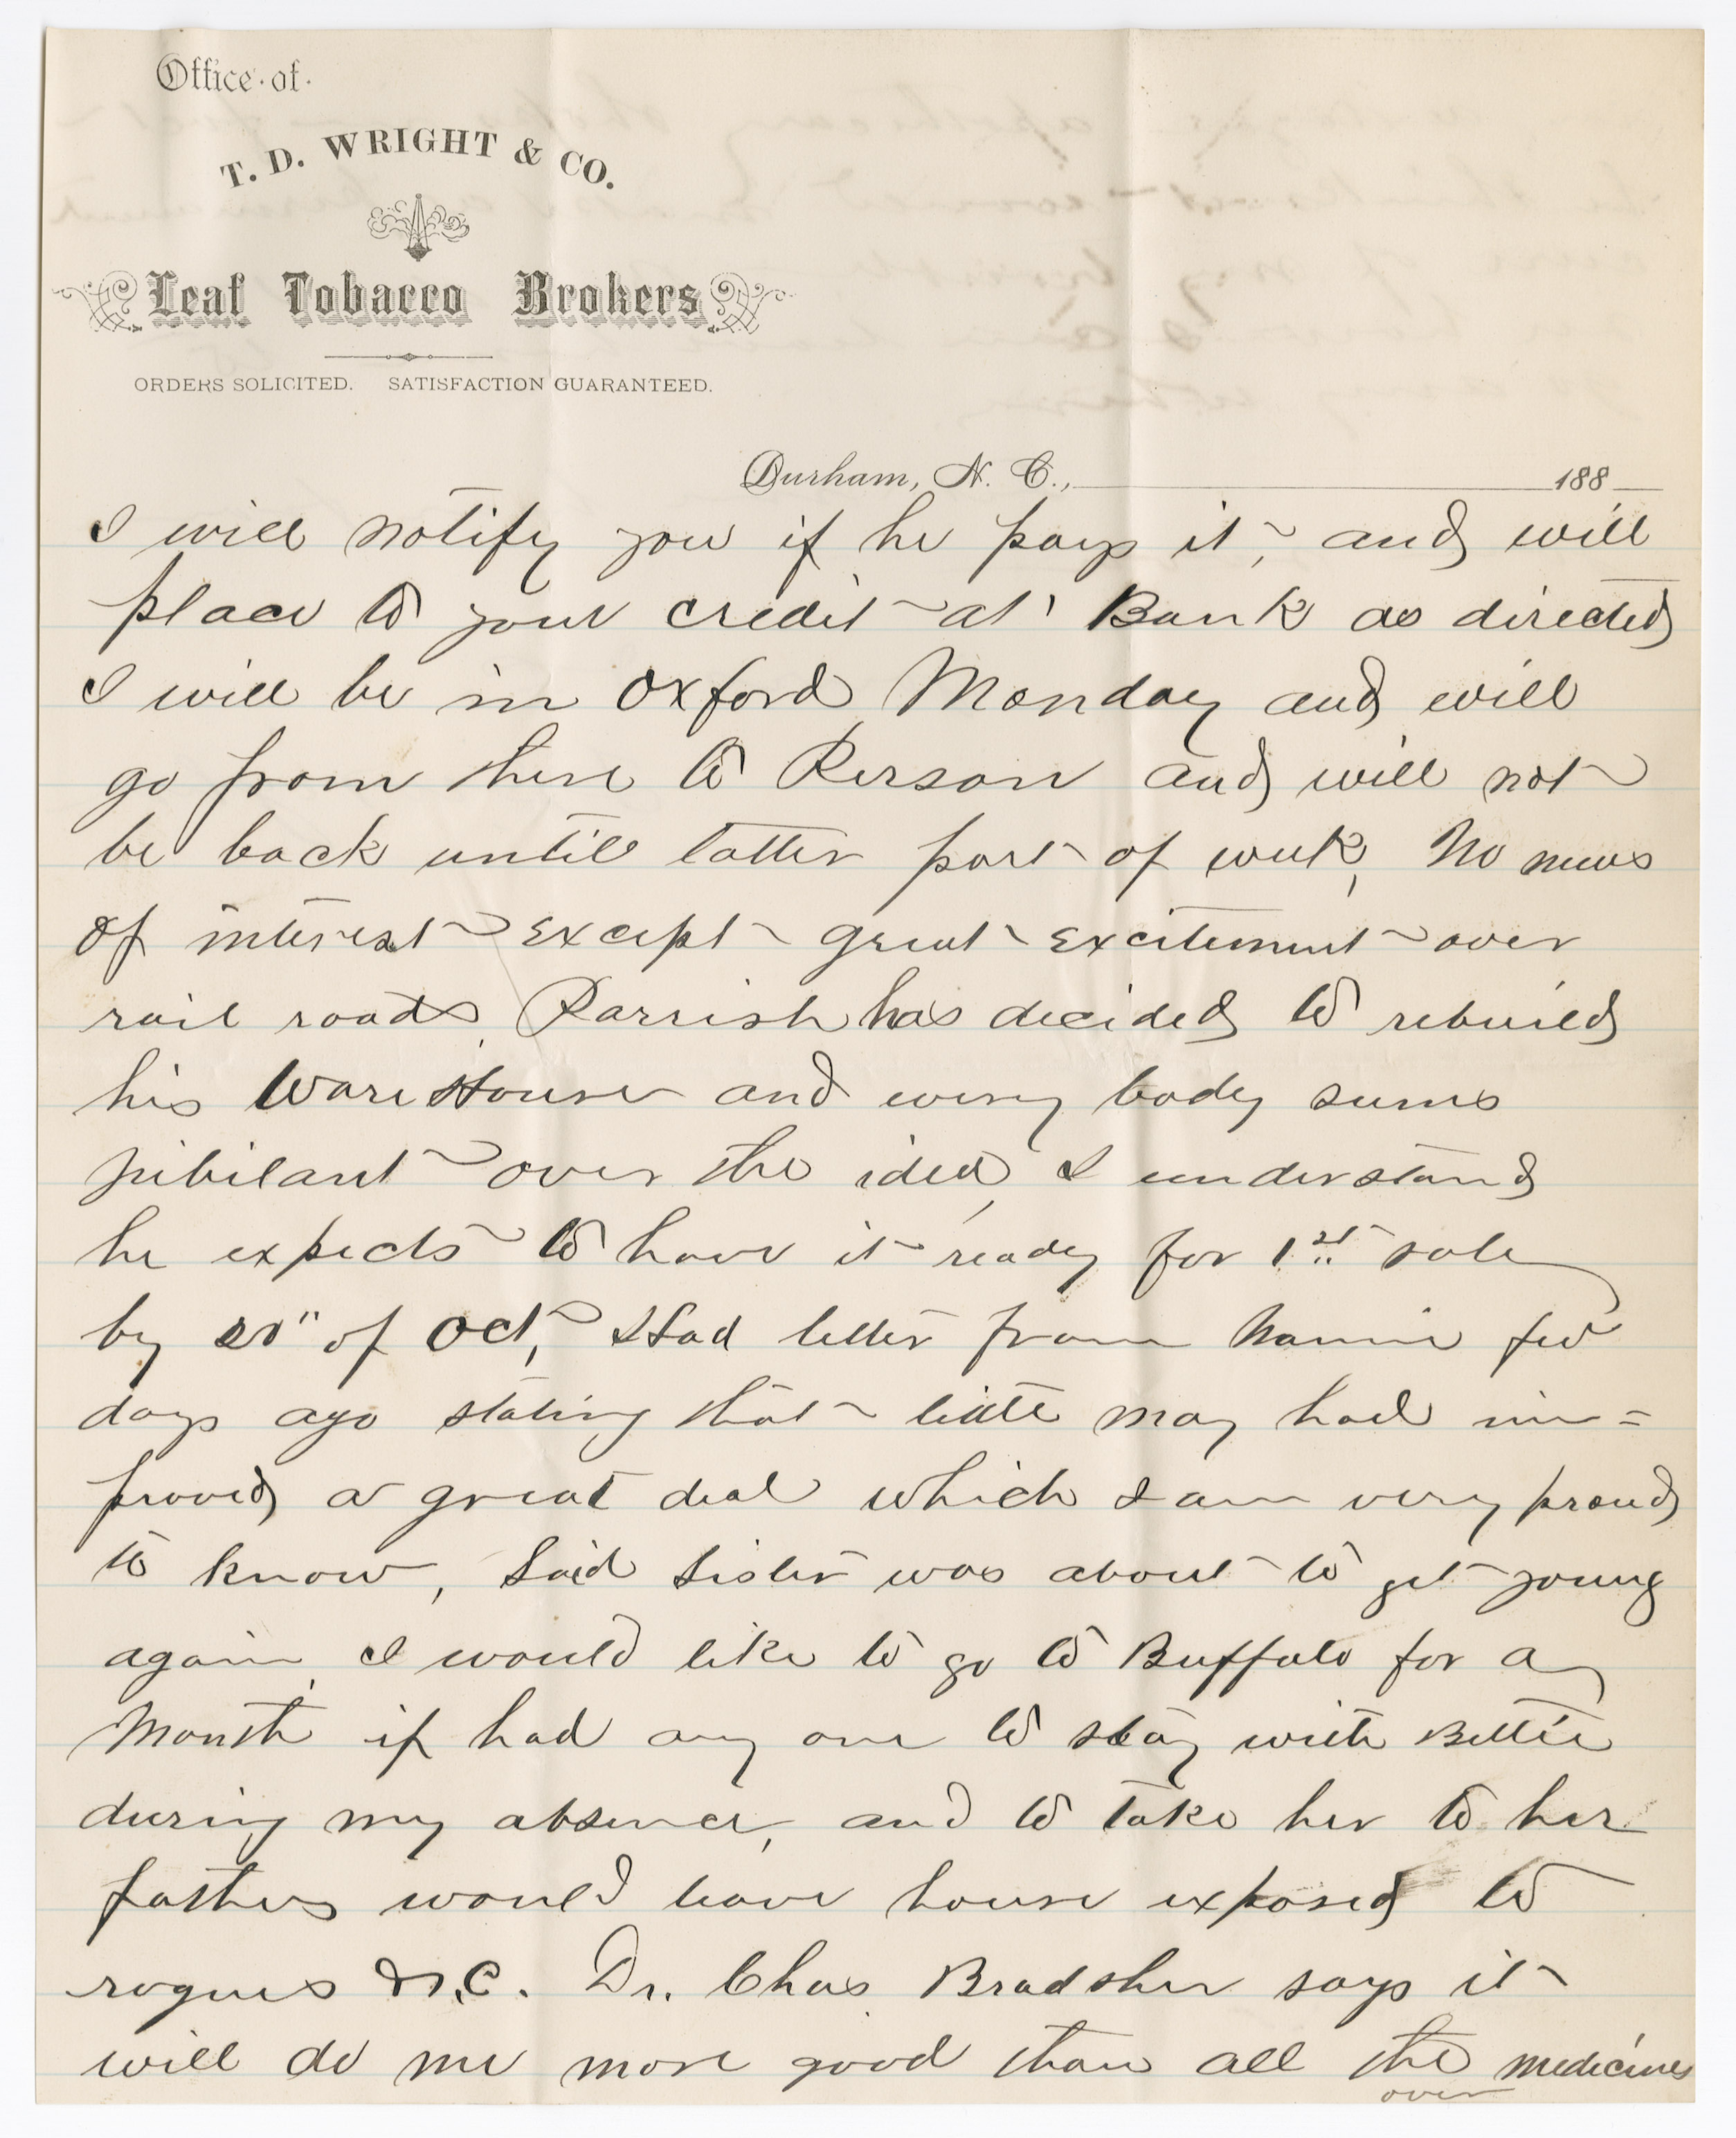 Office of
T. D. WRIGHT & CO.
Leaf Tobacco Brokers
ORDERS SOLICITED. SATISFACTION GUARANTEED.
Durham, N. C., 188
I will notify you if he pays it, and will
place to your credit at Bank as directed
I will be in Oxford Monday and will
go from there to Person and will not
be back until latter part of week, No news
of interest except great excitement over
rail roads, Parrish has decided to rebuild
his Ware House and every body seems
jubilant over the idea, I understand
he expects to have it ready for 1st sale
by 20" of Oct, Had letter from Nannie few
days ago stating that little may had im=
proved a great deal which I am very proud
to know, Said Sister was about to get young
again, I would like to go to Buffalo for a
Month if had any one to stay with Bettie
during my absence, and to take her to her
fathers would leave house exposed to
rogues &C. Dr. Chas Bradsher says it
will do me more good than all the medicines
over